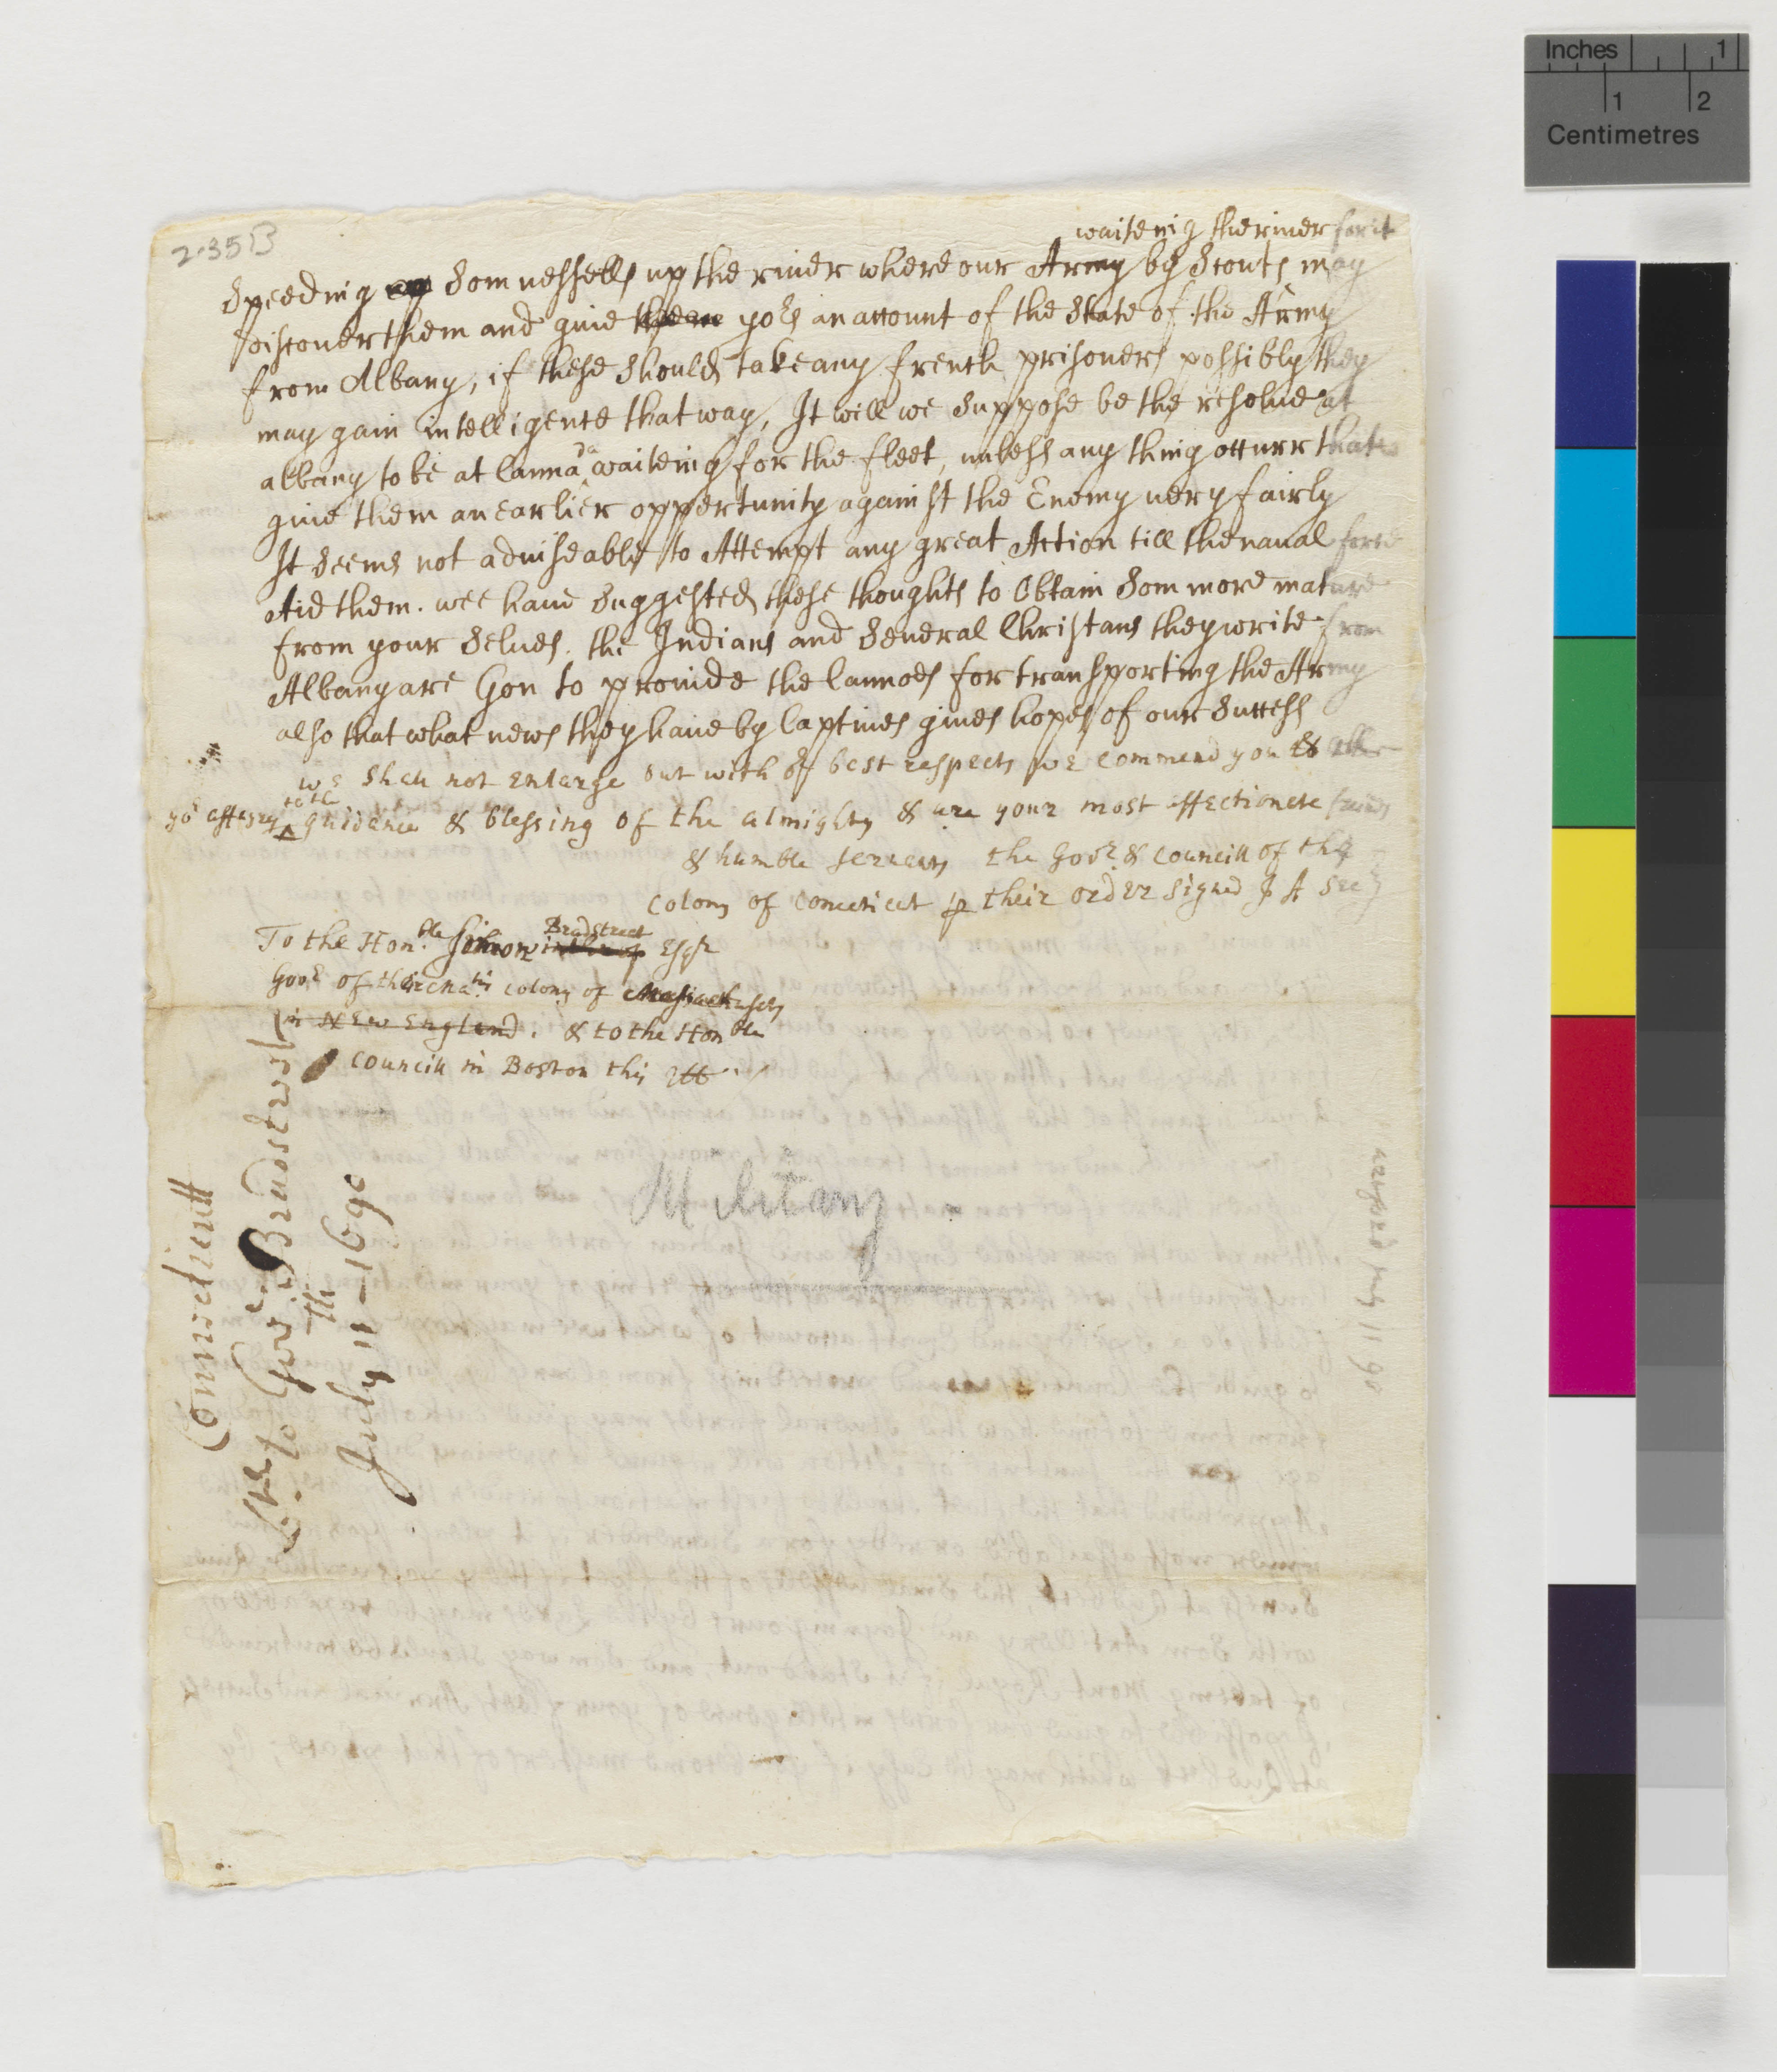 2.35B
waiteing the riuer for it
Speeding som uessells up the riuer where our Army by Scouts may
discouer them and giue yors an account of the State of the Army
from Albany, if these should take any french prisoners possibly they
may gain intelligence that way, It will we suppose be the resolue at
albany to be at Cannada waiteing for the fleet, unless any thing occurr that
giue them an earlier oppertunity against the Enemy uery fairly
It seems not aduiseable to Attempt any great Action till the naual force
Aid them. wee haue suggested these thoughts to Obtain som more mature
from your selues. the Indians and seueral Christans they write from
Albany are Gon to prouide the Cannoes for transporting the Army
also that what news they haue by Captiues giues hopes of our success
we shall not enlarge but with or best respects we commend you &
yor affayrs to the guidance & blessing of the almighty & are your most affectionate friends
& humble servants the Govr & Councill of the
Colony of Conecticut p their order signed J A Secry
To the Honble Simon Bradstreet Esqr
Govr of their maties colony of Massachusets
in New England. & to the Honble
Councill in Boston this
Connecticutt
Lttr to Govr Bradstreet
July 11th 1690
Military
July 11 90